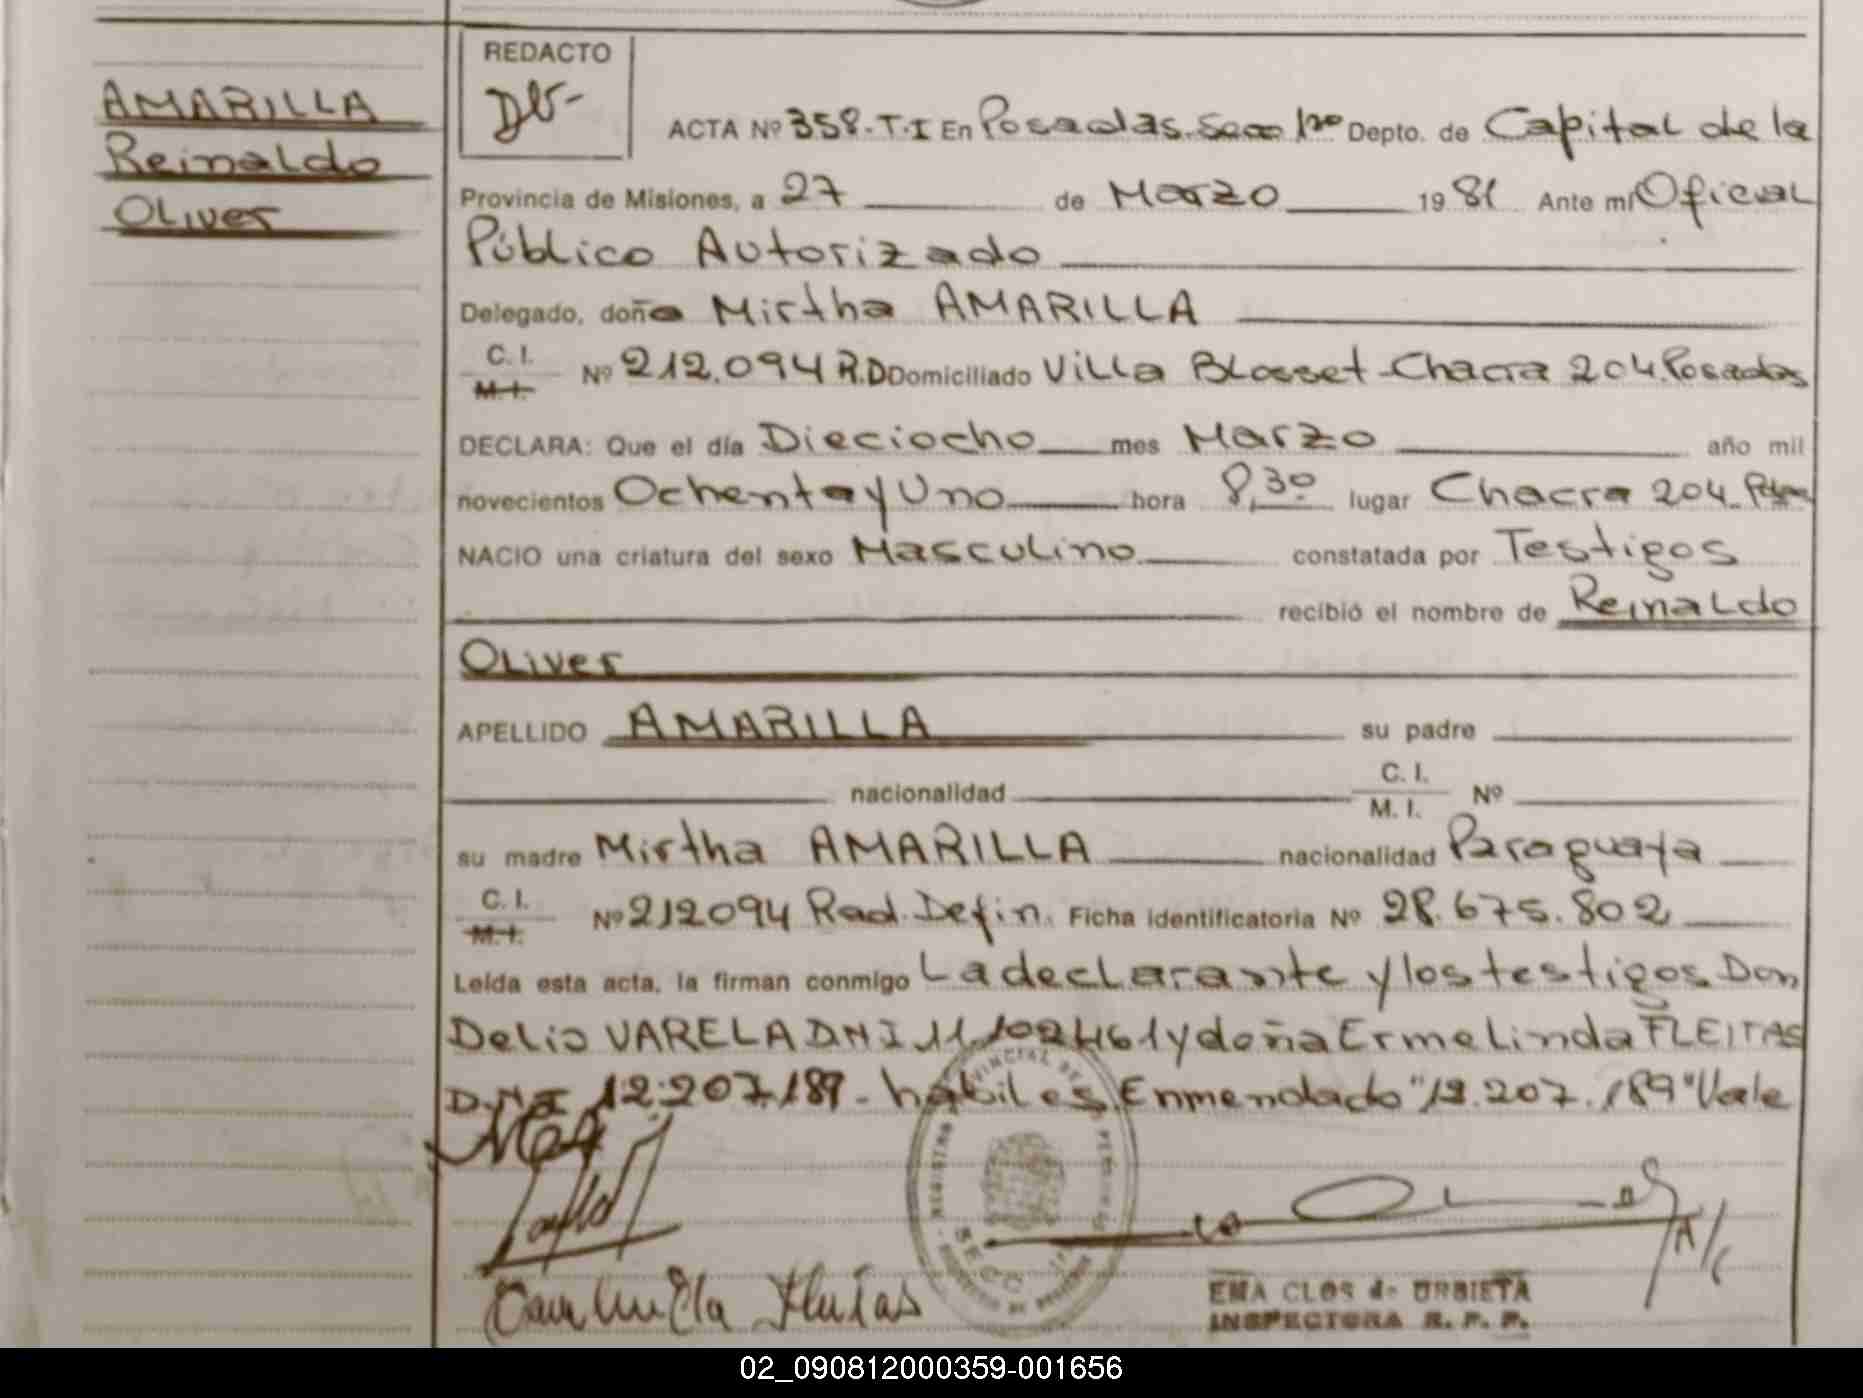 AMARILLA
Reinaldo
Oliver
REDACTO
ACTA Nº 358-T-I En Posadas. Secc 1ra Depto. de Capital de la
Provincia de Misiones, a 27 de Marzo 1981 Ante mí Oficial
Público Autorizado
Delegado, doña Mirtha AMARILLA
C. I.
M. I.
Nº 212.094 R.D Domiciliado Villa Blosset - Chacra 204. Posadas
DECLARA: Que el día Dieciocho mes Marzo año mil
novecientos Ochenta y Uno hora 8,30 lugar Chacra 204
NACIO una criatura del sexo Masculino constatada por Testigos
recibió el nombre de Reinaldo
Oliver
APELLIDO AMARILLA su padre
nacionalidad C. I. M. I. Nº
su madre Mirtha AMARILLA nacionalidad Paraguaya
C. I.
M. I.
Nº 212094 Rad. Defin. Ficha identificatoria Nº 28.675.802
Leída esta acta, la firman conmigo La declarante y los testigos Don
Delio VARELA DNI 11.102461 y doña Ermelinda FLEITAS
DNI 12.207.189 - hábiles. Enmendado "12.207.189" Vale
EMA CLOS de URBIETA
INSPECTORA R. P. P.
02_090812000359-001656